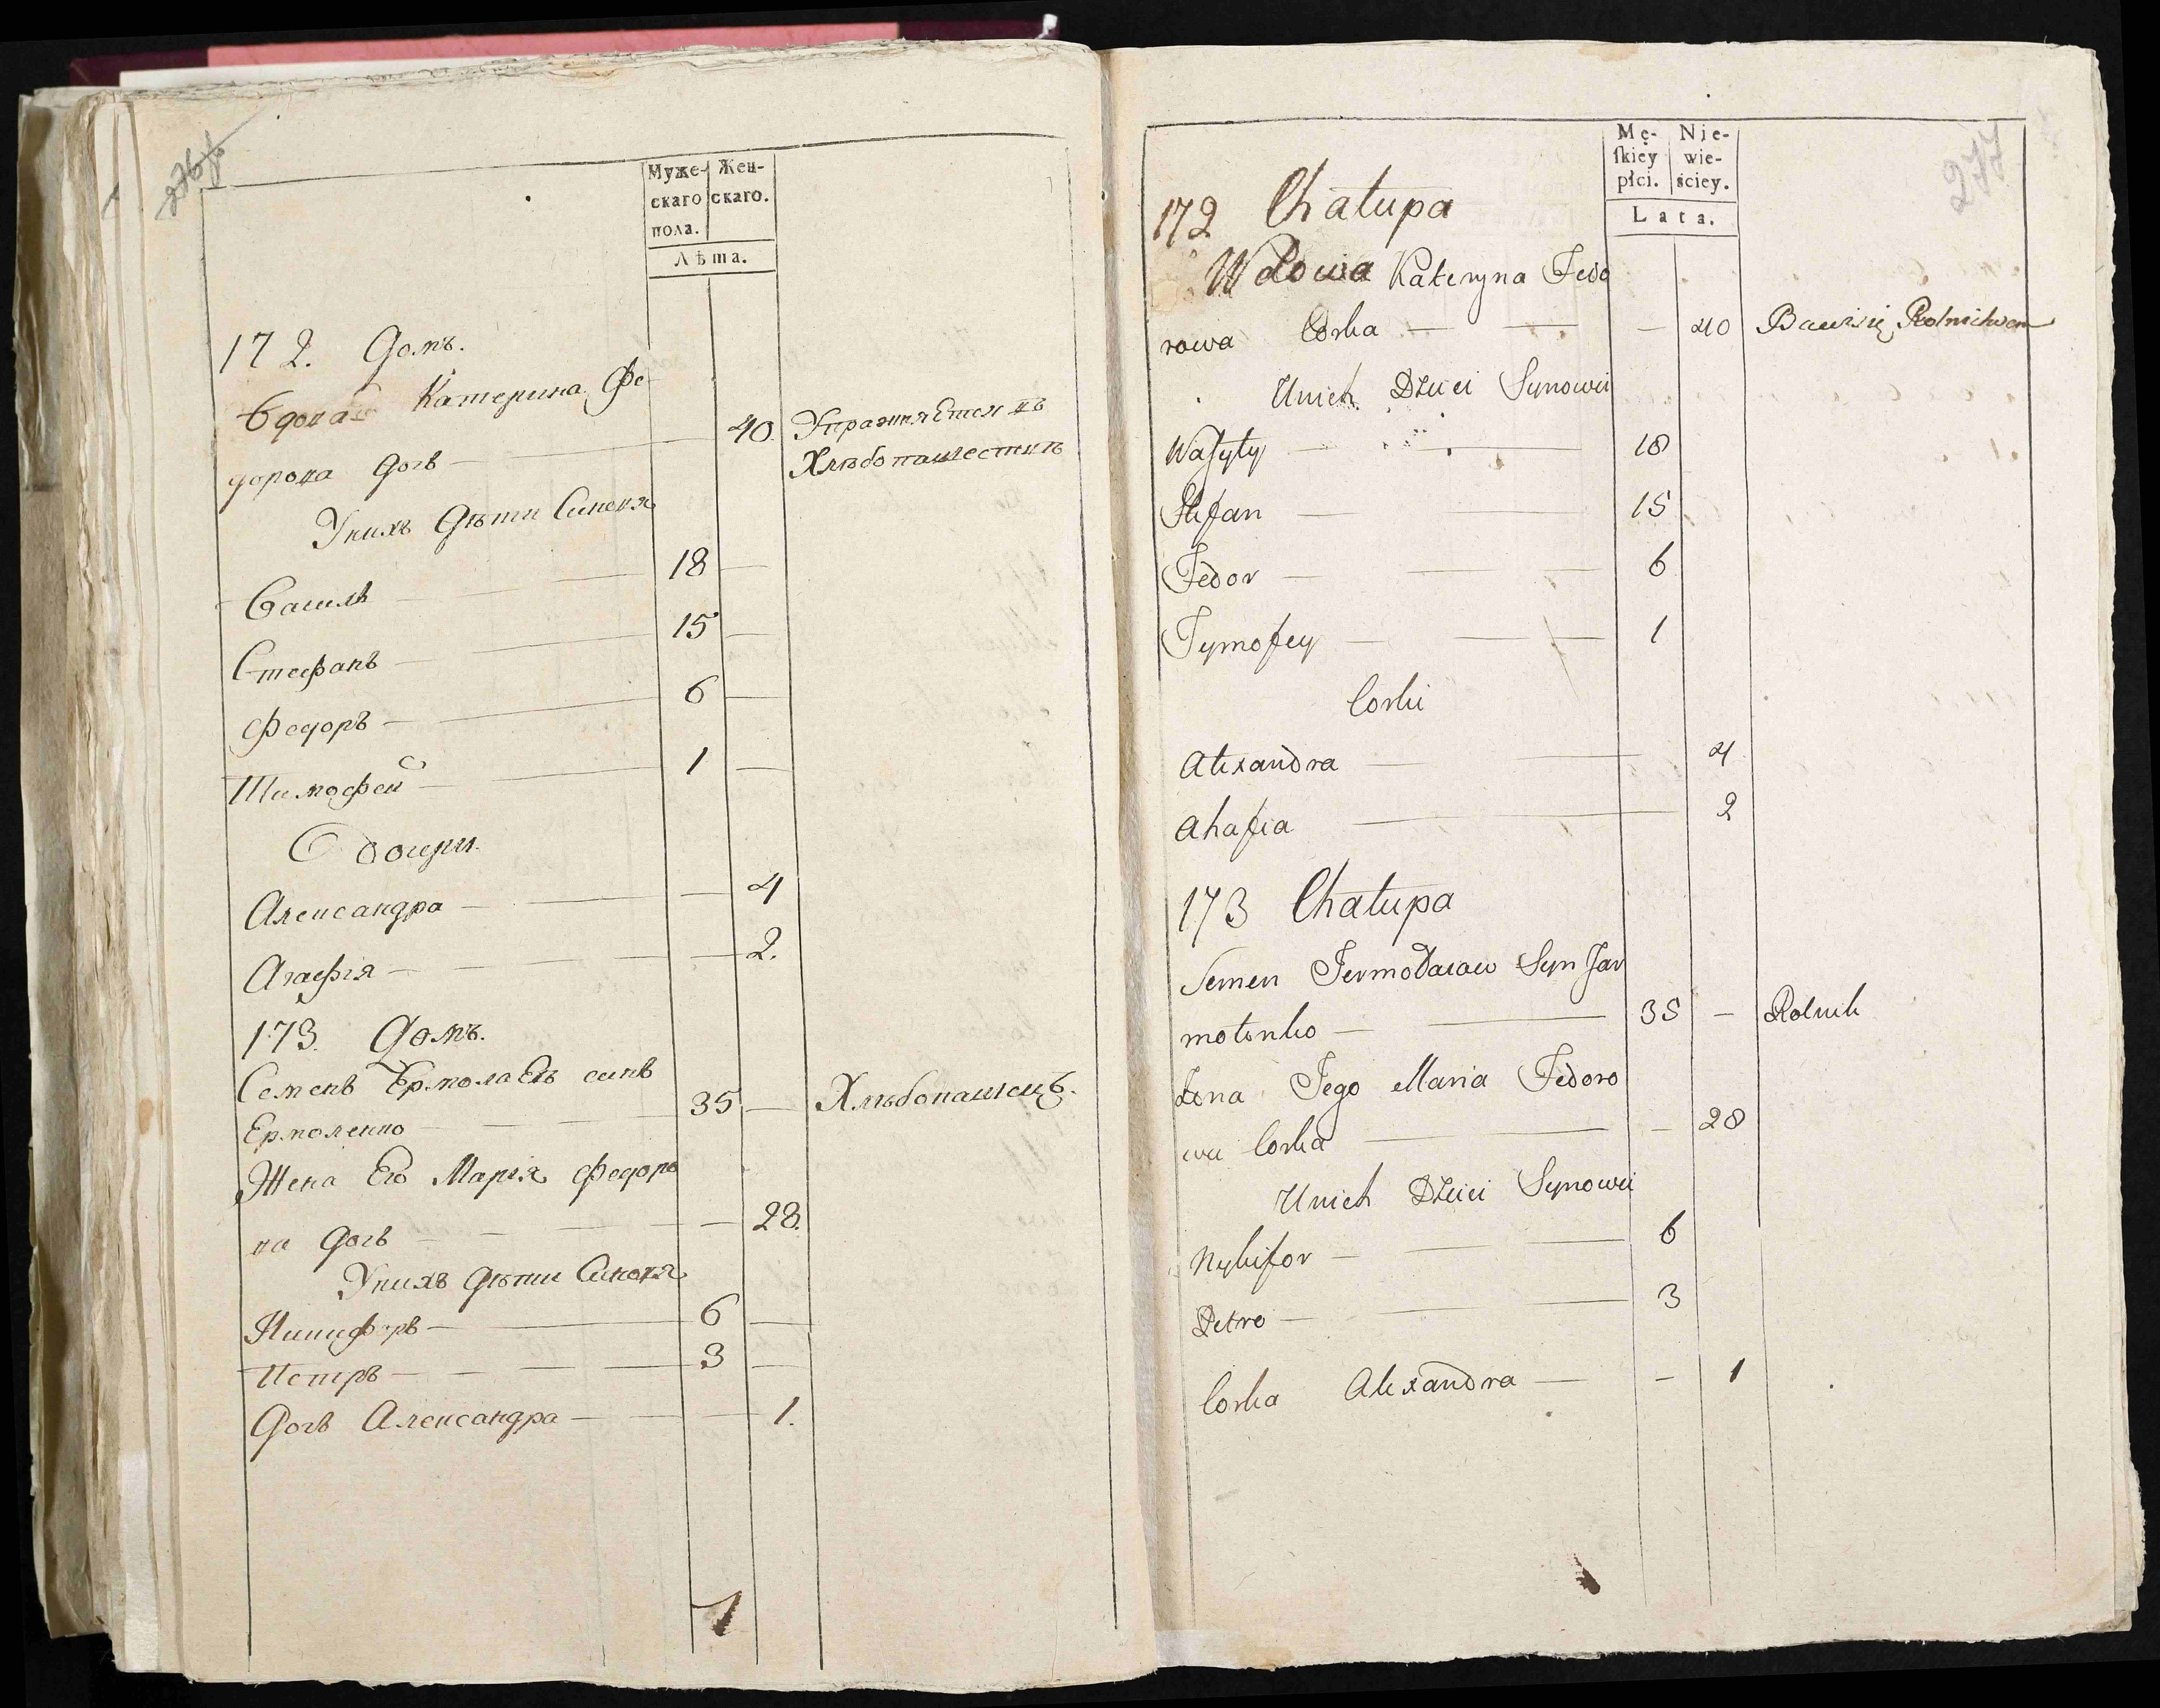 Муже-
скаго
пола.
Жен-
скаго.
Лѣта.
172. Домъ.
Вдова Катерина Фе-
дорова дочь — 40. Упражняется въ
Хлѣбопашествѣ
Унихъ дѣти Синовя
Василь — 18 —
Стефанъ — 15 —
Федоръ — 6 —
Тимофей — 1 —
Дочери
Александра — 4
Агафія — 2.
173. Домъ.
Семенъ Ермолаевъ синъ
Ермоленко — 35 — Хлѣбопашецъ.
Жена Его Марія Федоро
ва дочь — 28.
Унихъ дѣти Синовя
Никифоръ — 6 —
Петръ — 3 —
Дочь Александра — 1.
277
Mę-
skiey
płci.
Nie-
wie-
ściey.
Lata.
172 Chałupa
Wdowa Kateryna Fedo
rowa Corka — 40 Bawi się Rolnictwem
Unich Dzieci Synowi
Wasyly — 18
Stefan — 15
Fedor — 6
Tymofey — 1
Corki
Alexandra — 4
Ahafia — 2
173 Chałupa
Semen Jermołaiow Syn Jar
molenko — 35 — Rolnik
Żona Jego Maria Fedoro
wa Corka — 28
Unich Dzieci Synowi
Nykifor — 6
Petro — 3
Corka Alexandra — 1